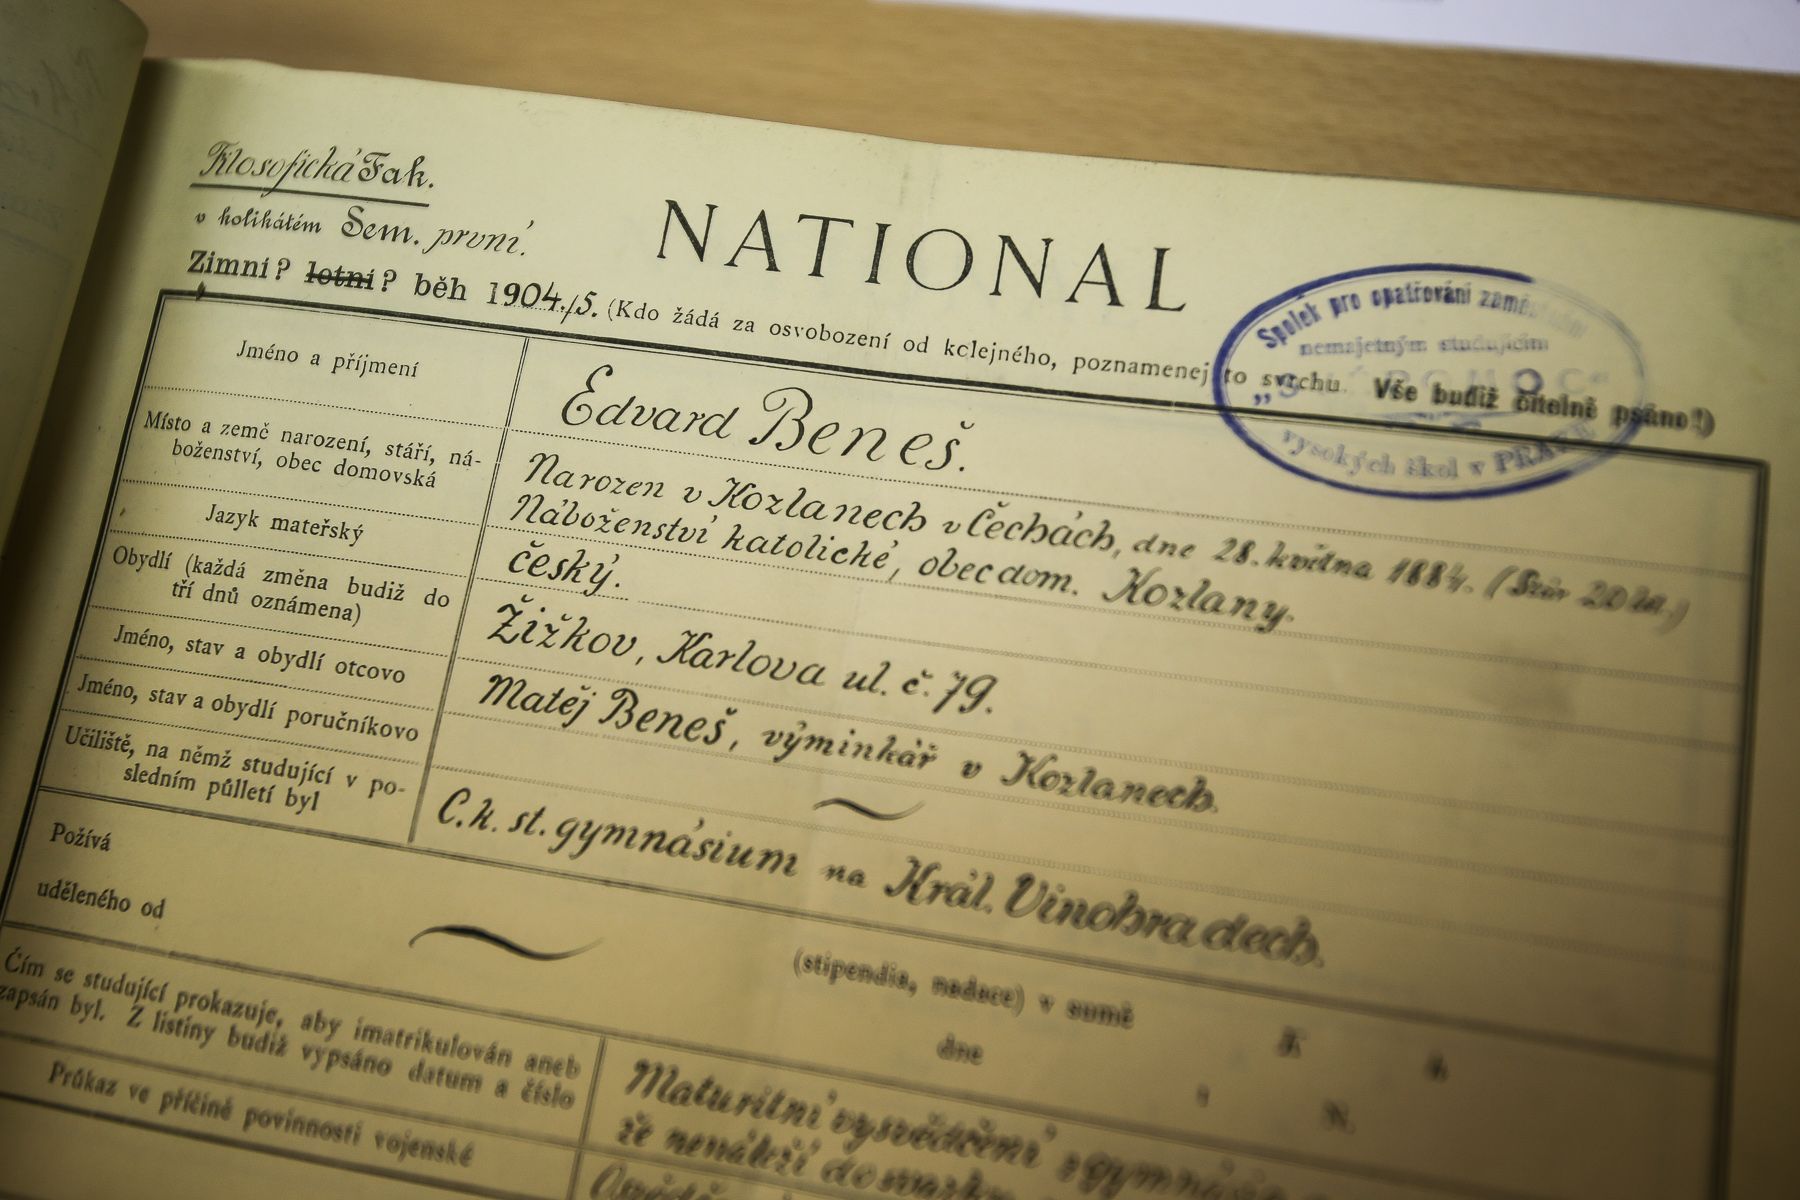 Filosofická Fak.
v kolikátém Sem. první.
NATIONAL
Zimní? letní? běh 1904./5. (Kdo žádá za osvobození od kolejného, poznamenej to svrchu. Vše budiž čitelně psáno!)
Spolek pro opatřování
nemajetným studujícím
vysokých škol v PRAZE
Jméno a příjmení
Edvard Beneš.
Místo a země narození, stáří, ná-
boženství, obec domovská
Narozen v Kozlanech v Čechách, dne 28. května 1884. (
Náboženství katolické, obec dom. Kozlany.
Jazyk mateřský
český.
Obydlí (každá změna budiž do
tří dnů oznámena)
Žižkov, Karlova ul. č. 79.
Jméno, stav a obydlí otcovo
Matěj Beneš, výminkář v Kozlanech.
Jméno, stav a obydlí poručníkovo
Učiliště, na němž studující v po-
sledním půlletí byl
C. k. st. gymnásium na Král. Vinohradech.
Požívá
(stipendia, nadace) v sumě
uděleného od
dne
Čím se studující prokazuje, aby imatrikulován aneb
zapsán byl. Z listiny budiž vypsáno datum a číslo
Maturitní vysvědčení z
že nenáleží do svazku
Průkaz ve příčině povinnosti vojenské